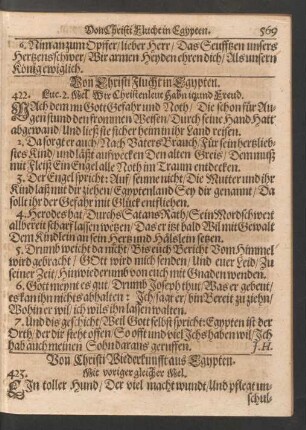 Von Christi Flucht in Egypten. 569
6. Nim an zum Opffer / lieber Herr / Das Seufftzen unsers
Hertzens schwer / Wir armen Heyden ehren dich / Als unsern
König ewiglich.
Von Christi Flucht in Egypten.
422. Luc. 2. Mel. Wir Christenleut habn itzund Freud.
NAch dem nu Gott Gefahr und Noth / Die schon für Au-
gen stund den frommen Weisen / Durch seine Hand Hatt
abgewand Und ließ sie sicher heim in ihr Land reisen.
2. Da sorgt er auch / Nach Vaters Brauch Für sein hertzlieb-
stes Kind / und läßt aufwecken Den alten Greis / Dem muß
mit Fleiß Ein Engel alle Noth im Traum entdecken.
3. Der Engel spricht: Auf! seume nicht / Die Mutter und ihr
Kind laß mit dir ziehen / Egyptenland Sey dir genannt / Da
sollt ihr der Gefahr mit Glück entfliehen.
4. Herodes hat / Durchs Satans Rath / Sein Mordschwert
allbereit scharf lassen wetzen / Das er ist bald Wil mit Gewalt
Dem Kindlein an sein Hertz und Hälslein setzen.
5. Drumb weicht da nicht / Bis euch Bericht Vom Himmel
wird gebracht / GOtt wird mich senden / Und euer Leid / Zu
seiner Zeit / Hinwiederumb von euch mit Gnaden wenden.
6. Gott meynt es gut / Drumb Joseph thut / Was er gebeut /
es kan ihn nichts abhalten: Ich / sagt er / bin Bereit zu ziehn /
Wohin er wil / ich wils ihn lassen walten.
7. Und dis geschicht / Weil Gott selbst spricht: Egypten ist der
Ort / der dir steht offen / So offt und viel Ichs haben wil / Ich
hab auch meinen Sohn daraus geruffen. J. H.
Von Christi Wiederkunfft aus Egypten.
423. Mit voriger gleicher Mel.
EIn toller Hund / Der viel macht wundt / Und pflegt un-
schul-